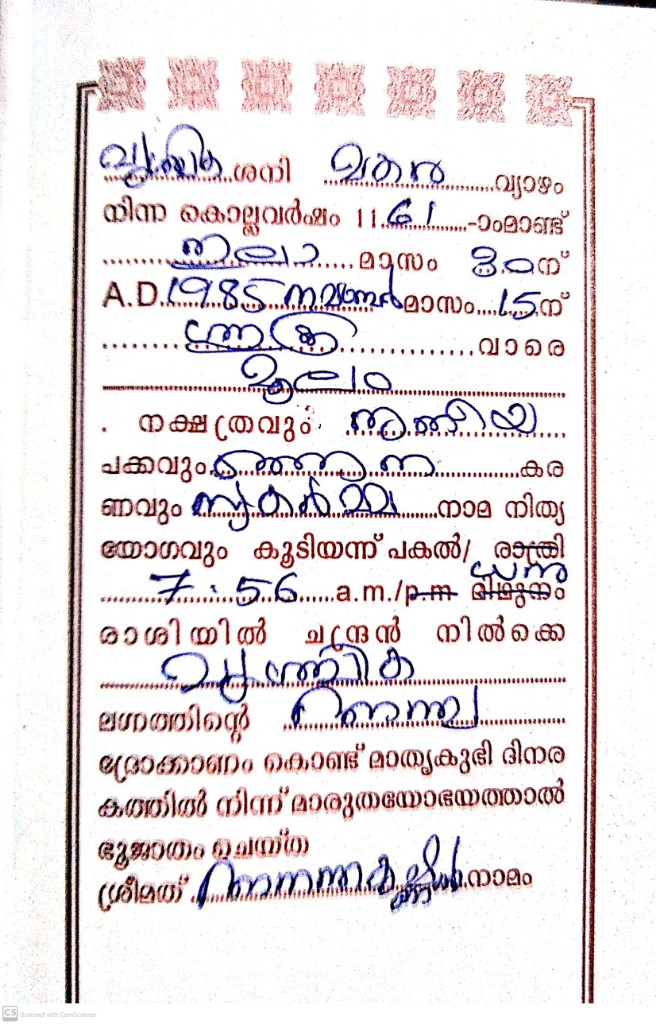 വൃശ്ചിക ശനി മകര വ്യാഴം
നിന്ന കൊല്ലവർഷം 1161-ാംമാണ്ട്
തുലാ മാസം 30ന്
A.D. 1985 നവമ്പർ മാസം 15ന്
വാരെ
മൂലം
നക്ഷത്രവും തൃതീയ
പക്കവും കര
ണവും സുകർമ്മ നാമ നിത്യ
യോഗവും കൂടിയന്ന് പകൽ/ രാത്രി
7:56 a.m./p.m മിഥുനം ധനു
രാശിയിൽ ചന്ദ്രൻ നിൽക്കെ
വൃശ്ചിക
ലഗ്നത്തിന്റെ
ദ്രോക്കാണം കൊണ്ട് മാതൃകുഭി ദിനര
കത്തിൽ നിന്ന് മാരുതയോഭയത്താൽ
ഭൂജാതം ഉചയ്ത
ശ്രീമത് നാമം
CS Scanned with CamScanner